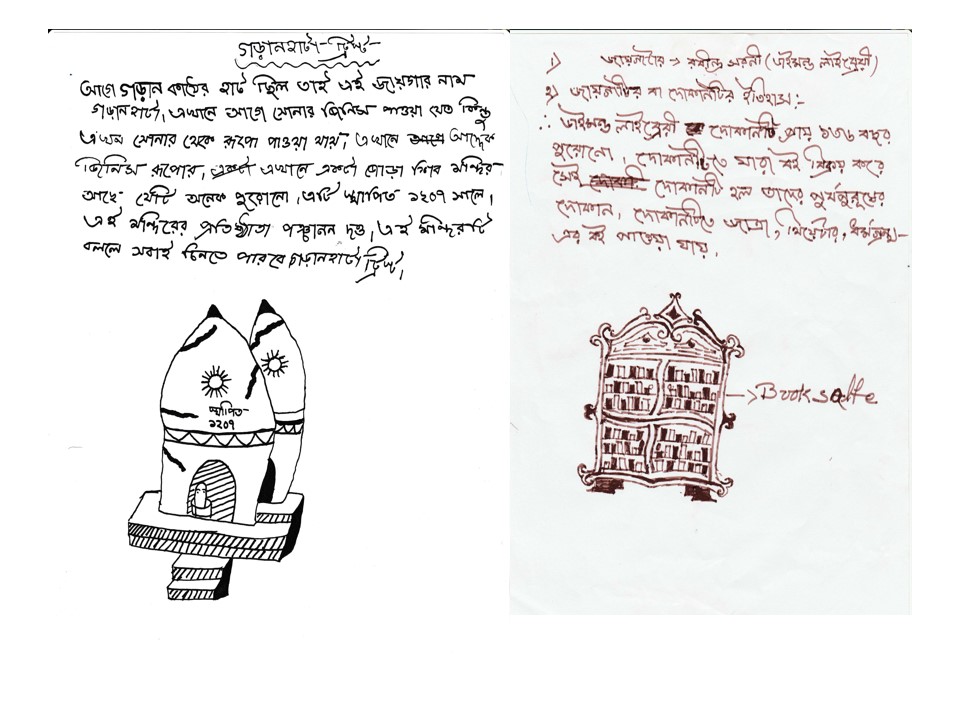 গড়ানহাটা স্ট্রিট
আগে গড়ান কাঠের হাট ছিল তাই এই জায়গার নাম
গড়ানহাটা, এখানে আগে সোনার জিনিস পাওয়া যেত কিন্তু
এখন সোনার থেকে রূপো পাওয়া যায়, এখানে অর্দ্ধেক
জিনিস রূপোর, এখানে একটা জোড়া শিব মন্দির
আছে যেটি অনেক পুরোনো, এটি স্থাপিত ১২০৭ সালে,
এই মন্দিরের প্রতিষ্ঠাতা পঞ্চানন দত্ত, এই মন্দিরটি
বললে সবাই চিনতে পারবে গড়ানহাটা স্ট্রিট,
স্থাপিত
১২০৭
১) জায়গাটার → রবীন্দ্র সরনী (ডাইমন্ড লাইব্রেরী)
২) জায়গাটির বা দোকানটির ইতিহাস :-
∴ ডাইমন্ড লাইব্রেরী দোকানটি প্রায় ১৩৬ বছর
পুরোনো, দোকানটিতে যারা বই বিক্রয় করে
সেই দোকানটি হল তাদের পূর্বপুরুষের
দোকান, দোকানটিতে যাত্রা, থিয়েটার, ধর্মগ্রন্থ-
এর বই পাওয়া যায়,
→ Bookselfe